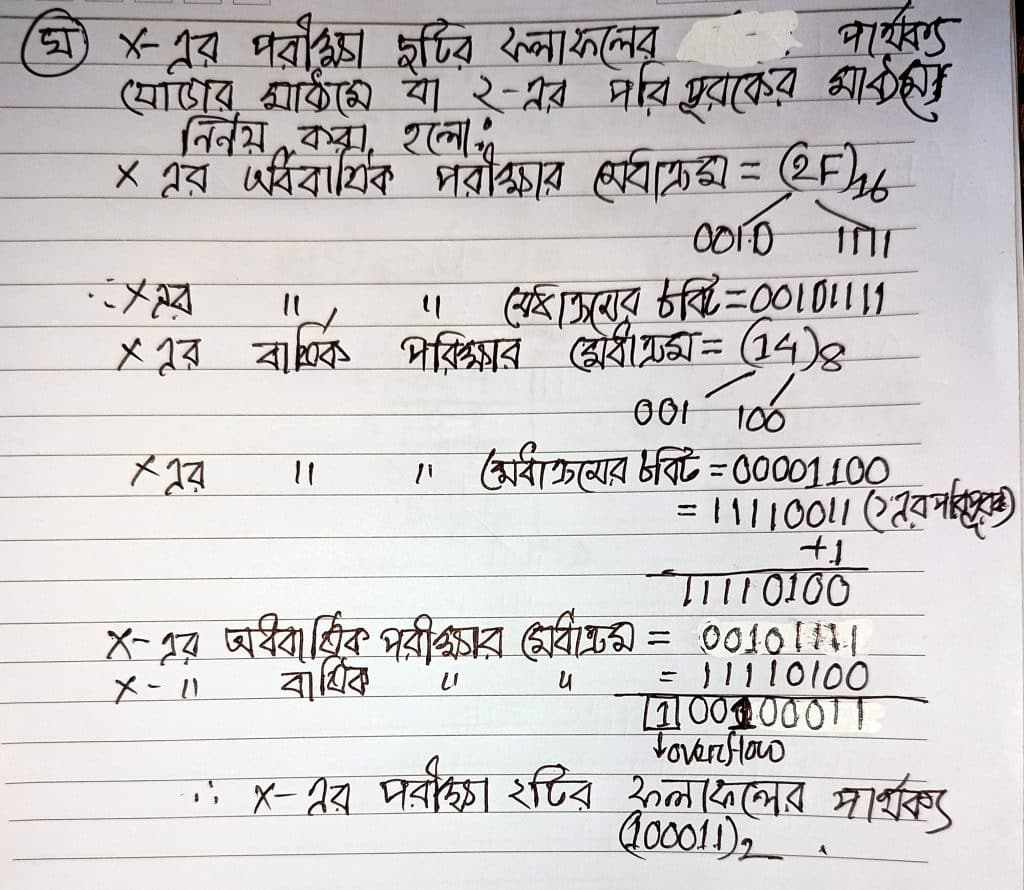 ঘ X-এর পরীক্ষা দুটির ফলাফলের পার্থক্য
যোগের মাধ্যমে বা ২-এর পরিপূরকের মাধ্যমে
নির্ণয় করা হলো:
X এর অর্ধবার্ষিক পরীক্ষার মেধাক্রম = (2F)16
0010 1111
∴ X এর " " মেধাক্রমের ৮বিট = 00101111
X এর বার্ষিক পরিক্ষার মেধাক্রম = (14)8
001 100
X এর " " মেধাক্রমের ৮বিট = 00001100
= 11110011 (১ এর পরিপূরক)
+1
11110100
X-এর অর্ধবার্ষিক পরীক্ষার মেধাক্রম = 00101111
X- " বার্ষিক " " = 11110100
1 00100011
↓overflow
∴ X-এর পরীক্ষা ২টির ফলাফলের পার্থক্য
(100011)2 .